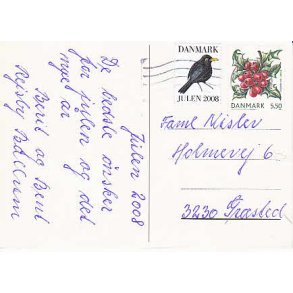 Julen 2008
De bedste ønsker
for julen og det
nye år
Berit og Bent
Rejsby Ballum
DANMARK
JULEN 2008
DANMARK
5.50
Faml Nisler
Holmevej 6
3230 Græsted